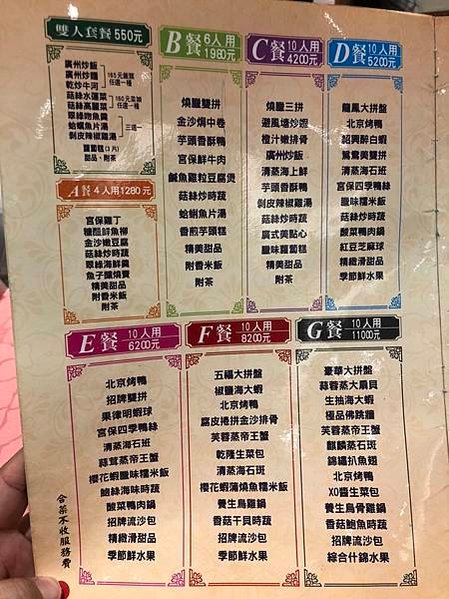 雙人套餐 550元
廣州炒飯
廣州炒麵
乾炒牛河
165元飯麵
任選一種
菇絲水蓮菜
菇絲高麗菜
翠綠吻魚羹
蛤蠣魚片湯
剝皮辣椒雞湯
三選一
蘿蔔糕(3片)
甜品、附茶
A餐 4人用1280元
宮保雞丁
糖醋鮮魚柳
金沙嫩豆腐
菇絲炒時蔬
翠綠海鮮羹
魚子醬燒賣
精美甜品
附香米飯
附茶
B餐 6人用 1980元
燒臘雙拼
金沙焗中卷
芋頭香酥鴨
宮保鮮牛肉
鹹魚雞粒豆腐煲
菇絲炒時蔬
蛤蜊魚片湯
香煎芋頭糕
精美甜品
附香米飯
附茶
C餐 10人用 4200元
燒臘三拼
避風塘炒蝦
橙汁嫩排骨
廣州炒飯
清蒸海上鮮
芋頭香酥鴨
剝皮辣椒雞湯
菇絲炒時蔬
廣式美點心
臘味蘿蔔糕
精美甜品
附茶
D餐 10人用 5200元
龍鳳大拼盤
北京烤鴨
紹興醉白蝦
鴛鴦美雙拼
清蒸海石斑
宮保四季鴨絲
臘味糯米飯
菇絲炒時蔬
酸菜鴨肉鍋
紅豆芝麻球
精緻滑甜品
季節鮮水果
E餐 10人用 6200元
北京烤鴨
招牌雙拼
果律明蝦球
宮保四季鴨絲
清蒸海石斑
蒜茸蒸帝王蟹
櫻花蝦臘味糯米飯
鮑絲海味時蔬
酸菜鴨肉鍋
招牌流沙包
精緻滑甜品
季節鮮水果
F餐 10人用 8200元
五福大拼盤
椒鹽海大蝦
北京烤鴨
腐皮捲拼金沙排骨
芙蓉蒸帝王蟹
乾隆生菜包
清蒸海石斑
櫻花蝦蒲燒魚糯米飯
養生烏雞鍋
香菇干貝時蔬
招牌流沙包
季節鮮水果
G餐 10人用 11000元
豪華大拼盤
蒜蓉蒸大扇貝
生抽海大蝦
極品佛跳牆
芙蓉蒸帝王蟹
麒麟蒸石斑
錦繡扒魚翅
北京烤鴨
XO醬生菜包
養生烏骨雞鍋
香菇鮑魚時蔬
招牌流沙包
綜合什錦水果
合菜不收服務費